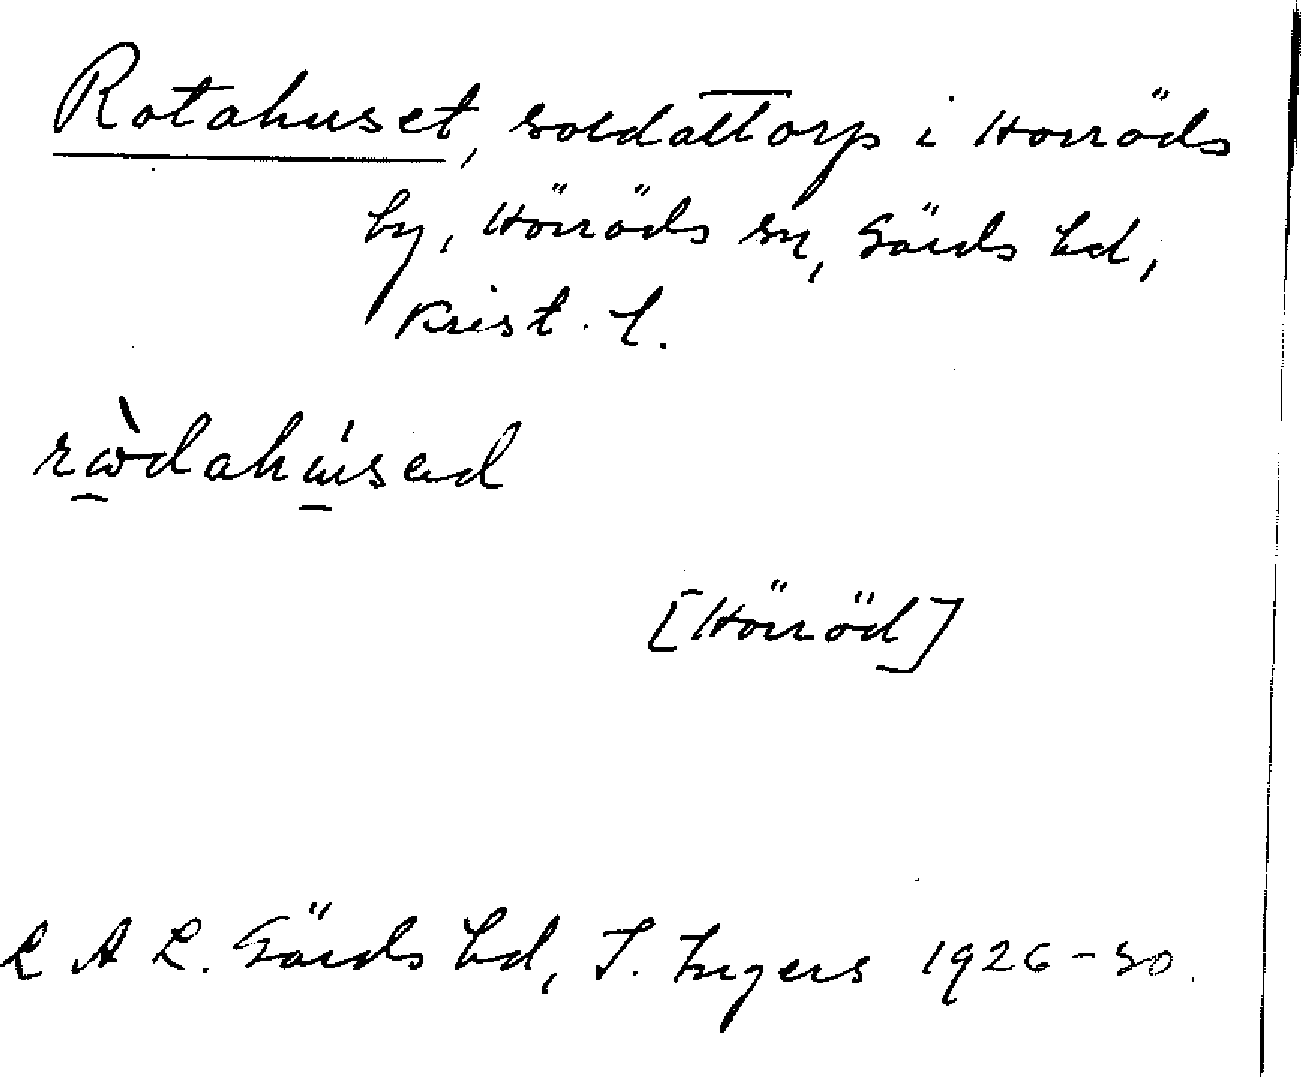 Rotahuset, soldattorp i Horröds
by, Hörröds sn, Gärds hd,
Krist. l.
rωdahusad
[Hörröd]
L A L. Gärds hd, I. Ingers 1926-30.